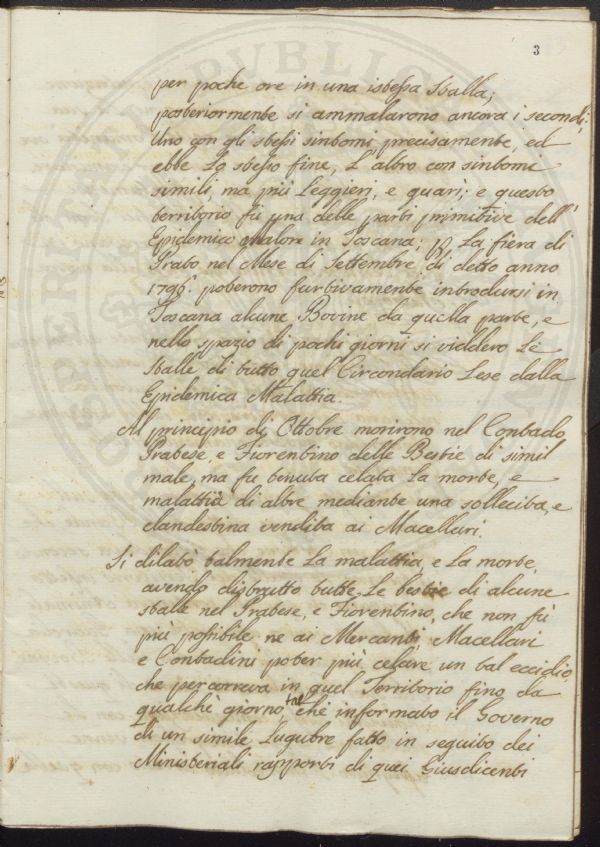 3
per poche ore in una istessa stalla;
posteriormente si ammalarono ancora i secondi;
Uno con gli stessi sintomi precisamente, ed
ebbe Lo stesso fine, L'altro con sintomi
simili, ma più Leggieri, e guarì; e questo
territorio fù una delle parti primitive dell'
Epidemico malore in Toscana; La fiera di
Prato nel Mese di Settembre di detto anno
1796. poterono furtivamente introdursi in
Toscana alcune Bovine da quella parte, e
nello spazio di pochi giorni si viddero Le
Stalle di tutto quel Circondario Lese dalla
Epidemica Malattia.
Al principio di Ottobre morirono nel Contado
Pratese, e Fiorentino delle Bestie di simil
male, ma fù tenuta celata La morte, e
malattia di altre mediante una sollecita, e
clandestina vendita ai Macellari.
Si dilatò talmente La malattia, e La morte,
avendo distrutto tutte Le bestie di alcune
stalle nel Pratese, e Fiorentino, che non fù
più possibile ne ai Mercanti Macellari
e Contadini poter più celare un tal eccidio,
che percorreva in quel Territorio fino da
qualche giorno, che informato il Governo
di un simile Lugubre fatto in seguito dei
Ministeriali rapporti di quei Giusdicenti